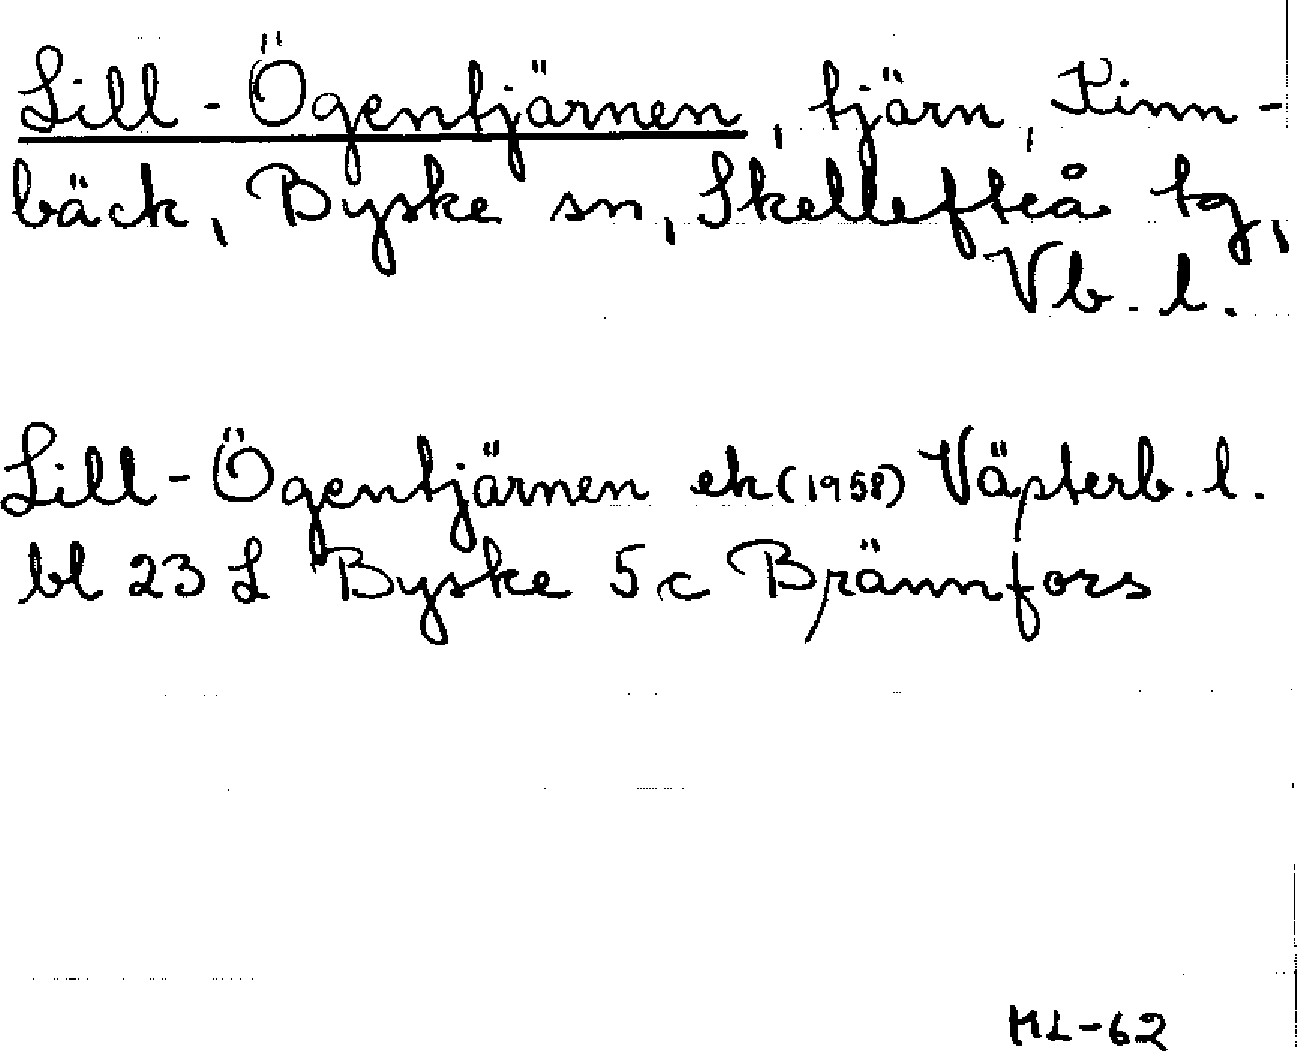 Lill-Ögentjärnen, tjärn, Kinn-
bäck, Byske sn, Skellefteå tg,
Vb. l.
Lill-Ögentjärnen ek (1958) Västerb. l.
bl 23 L Byske 5 c Brännfors
ML-62